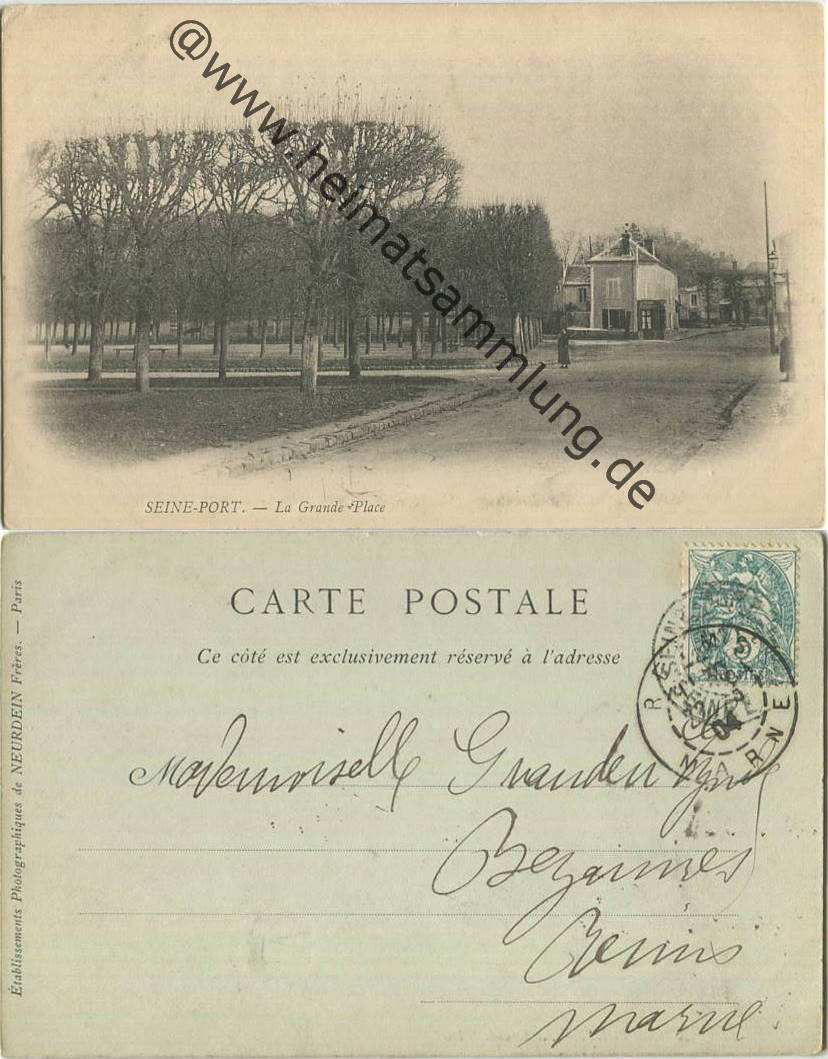 @www.heimatsammlung.de
SEINE-PORT. — La Grande Place
CARTE POSTALE
Ce côté est exclusivement réservé à l'adresse
Mademoiselle
Bezannes
Reims
Marne
MARNE
04
Établissements Photographiques de NEURDEIN Frères. — Paris